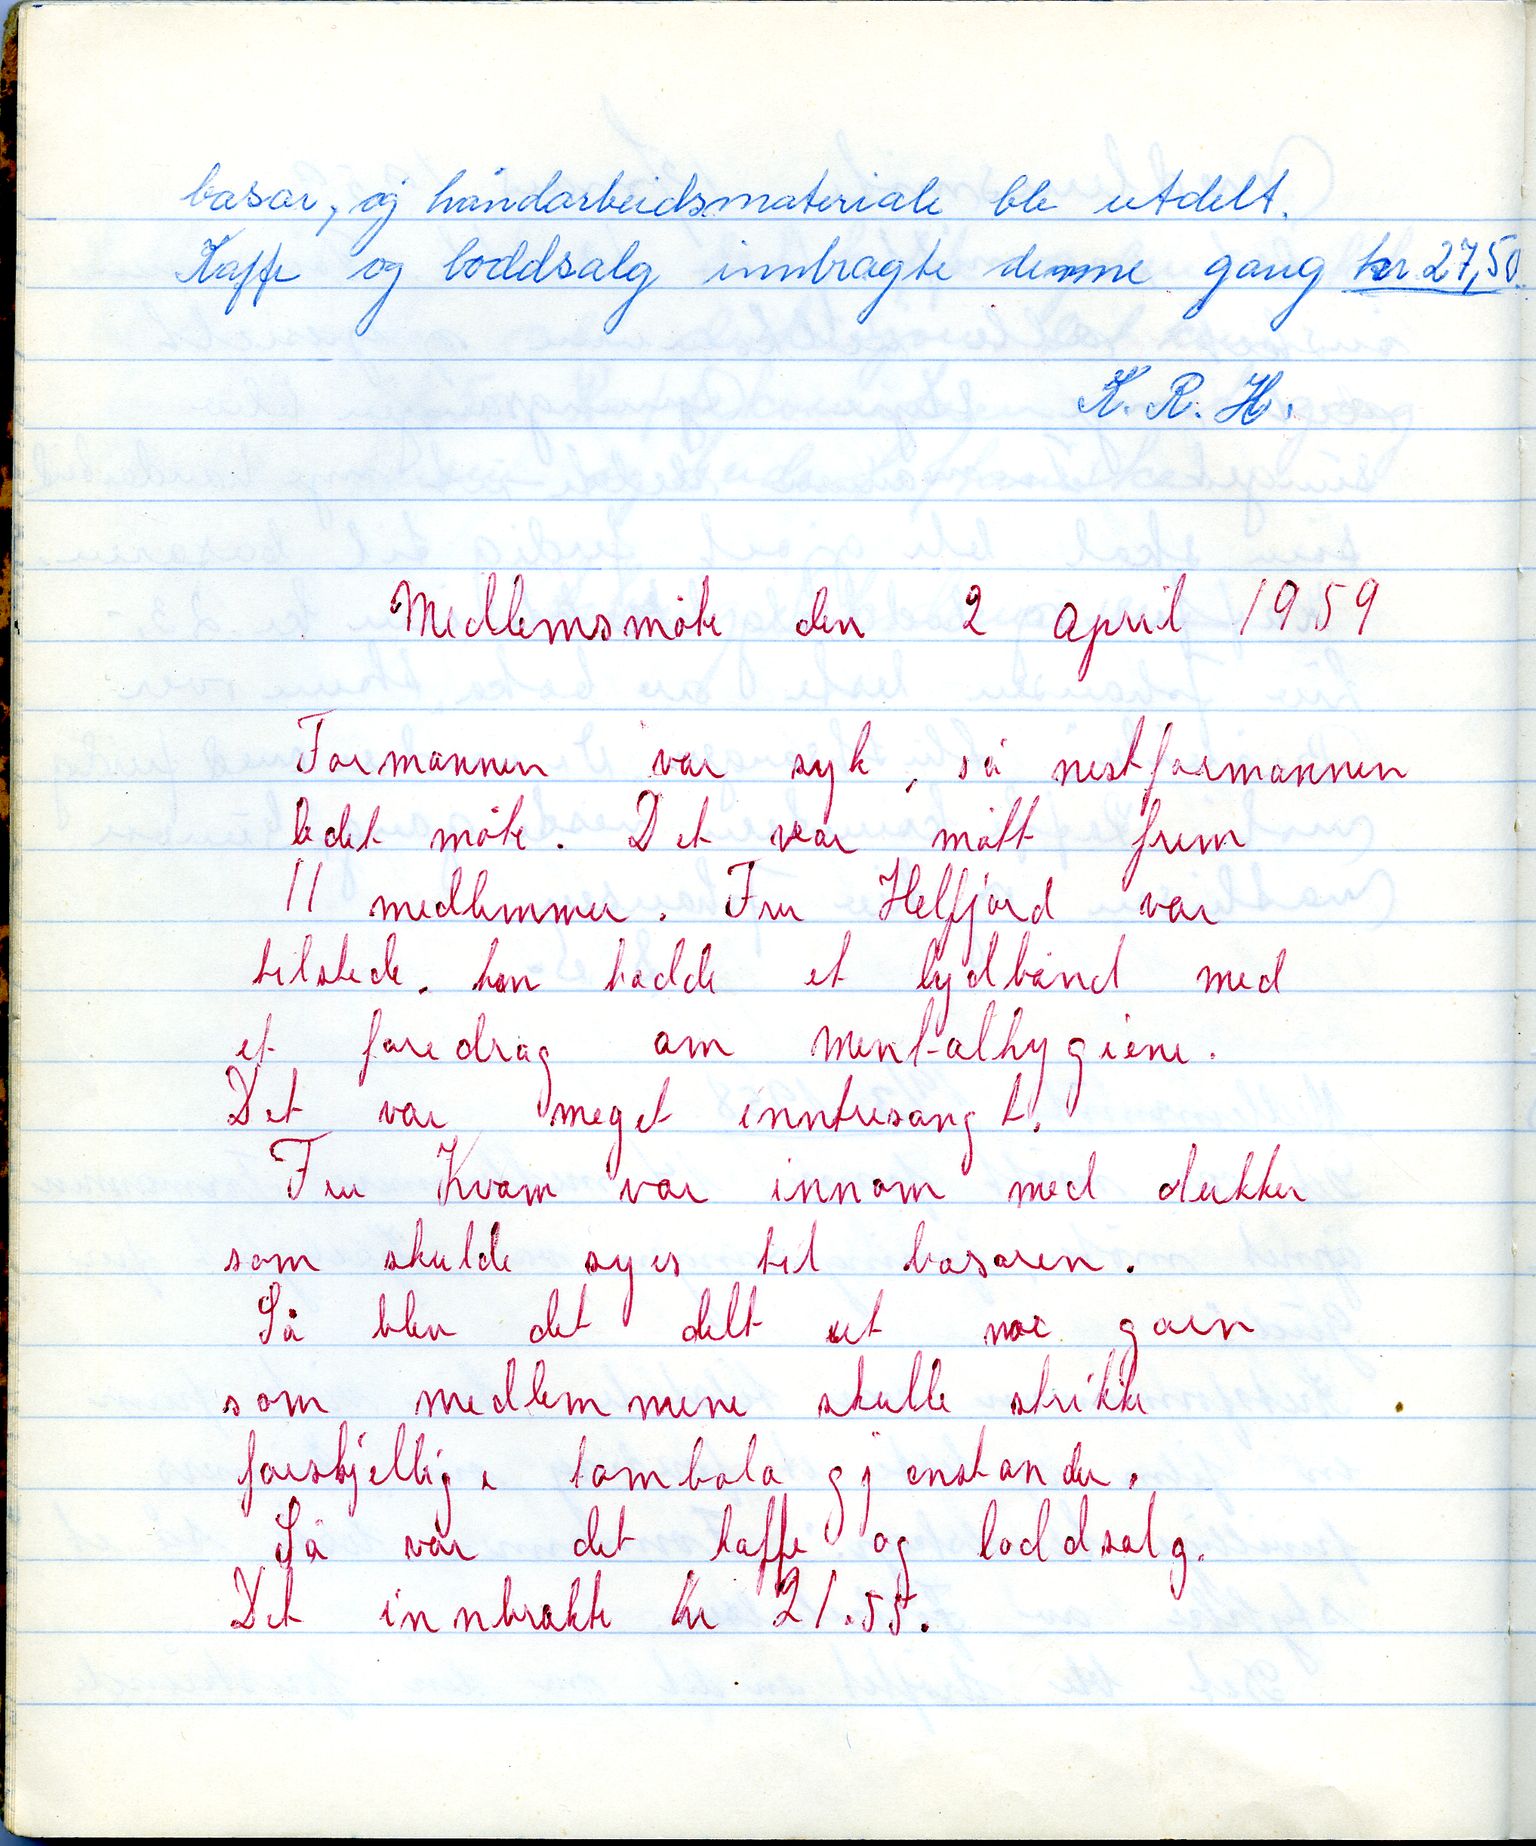 basar, og håndarbeidsmateriale ble utdelt.
Kaffe og loddsalg innbragte denne gang kr. 27,50.
K. R. H.
Medlemsmöte den 2 april 1959
Formannen var syk, så nestformannen
ledet möte. Det var mött frem
11 medlemmer. Fru Helfjord var
tilstede. hun hadde et lydbånd med
et foredrag om mentalhygiene.
Det var meget inntresangt.
Fru Kvam var innom med dukker
som skulde syes til basaren.
Så blev det delt ut noe garn
som medlemmene skulle strikke
forskjellige tombola gjenstander.
Så var det kaffe og loddsalg.
Det innbrakte kr 21.55.